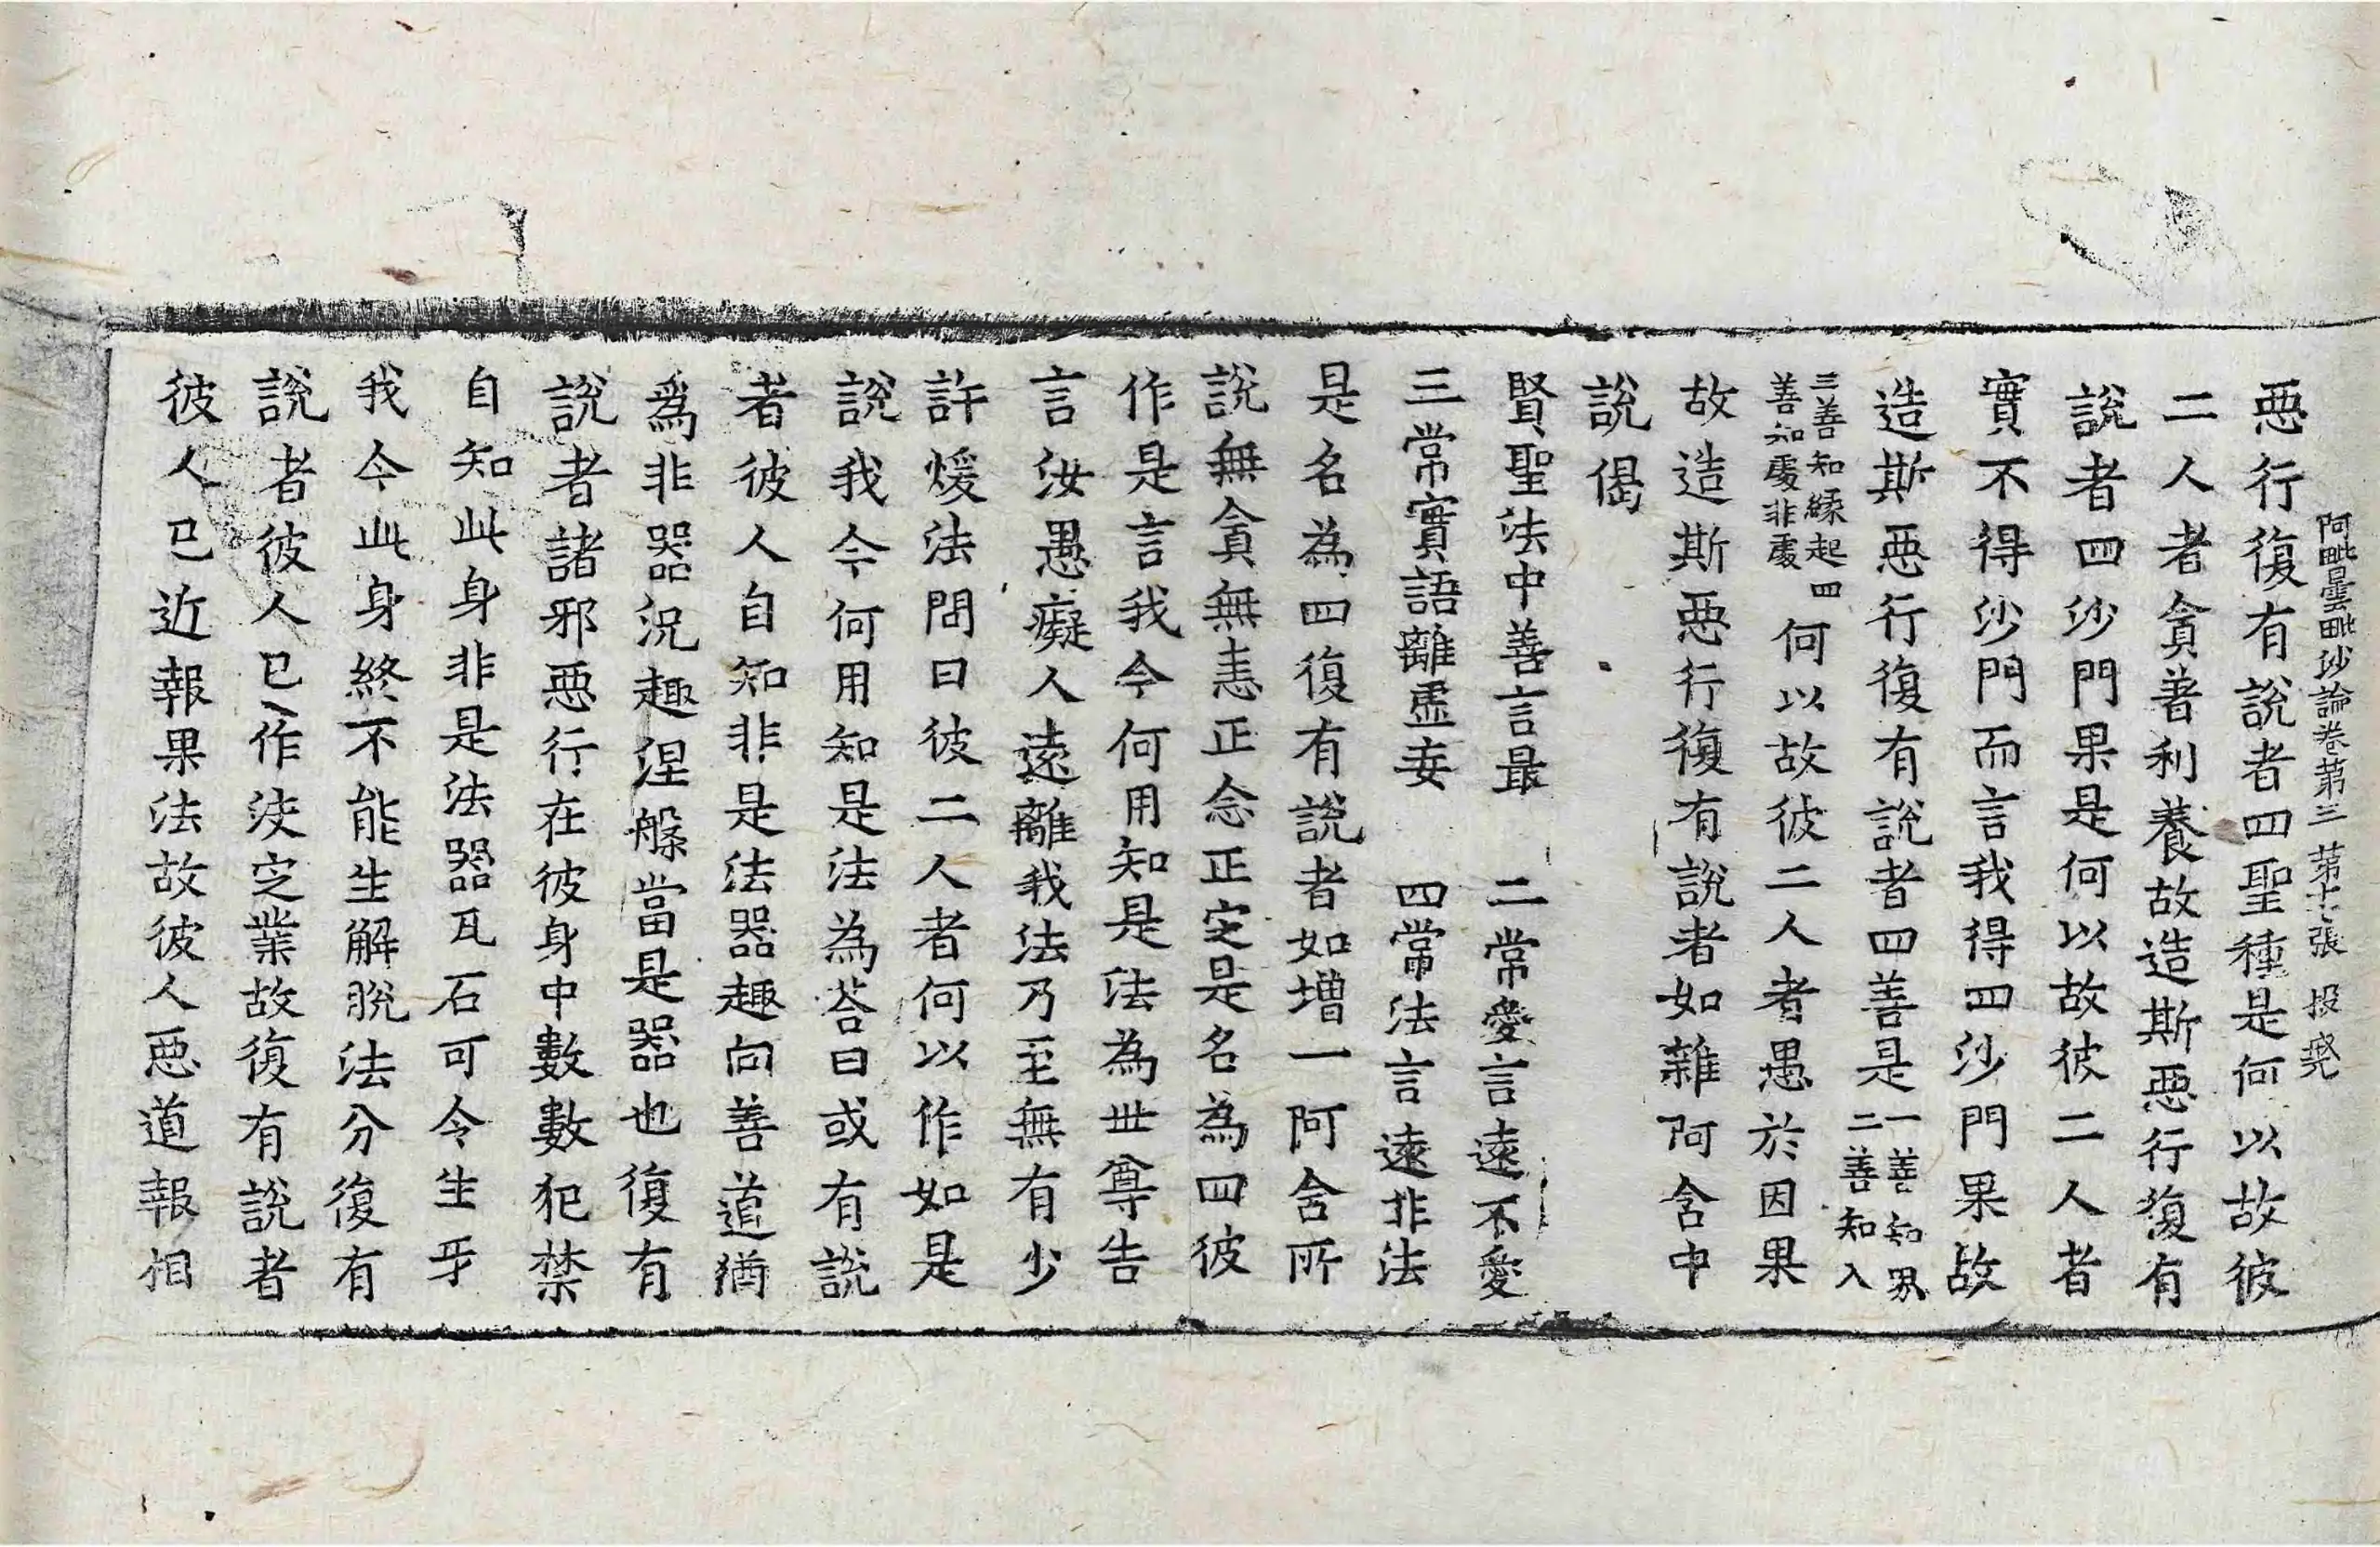 阿毗曇毗沙論卷第三 第十七張 投
惡行復有說者四聖種是何以故彼
二人者貪著利養故造斯惡行復有
說者四沙門果是何以故彼二人者
實不得沙門而言我得四沙門果故
造斯惡行復有說者四善是一善知界
二善知入
三善知緣起四
善知處非處
何以故彼二人者愚於因果
故造斯惡行復有說者如雜阿含中
說偈
賢聖法中善言最 二常愛言遠不愛
三常實語離虛妄 四常法言遠非法
是名為四復有說者如增一阿含所
說無貪無恚正念正定是名為四彼
作是言我今何用知是法為世尊告
言汝愚癡人遠離我法乃至無有少
許煖法問曰彼二人者何以作如是
說我今何用知是法為荅曰或有說
者彼人自知非是法器趣向善道猶
為非器況趣涅槃當是器也復有
說者諸邪惡行在彼身中數數犯禁
自知此身非是法器瓦石可令生牙
我今此身終不能生解脫法分復有
說者彼人已作決定業故復有說者
彼人已近報果法故彼人惡道報相